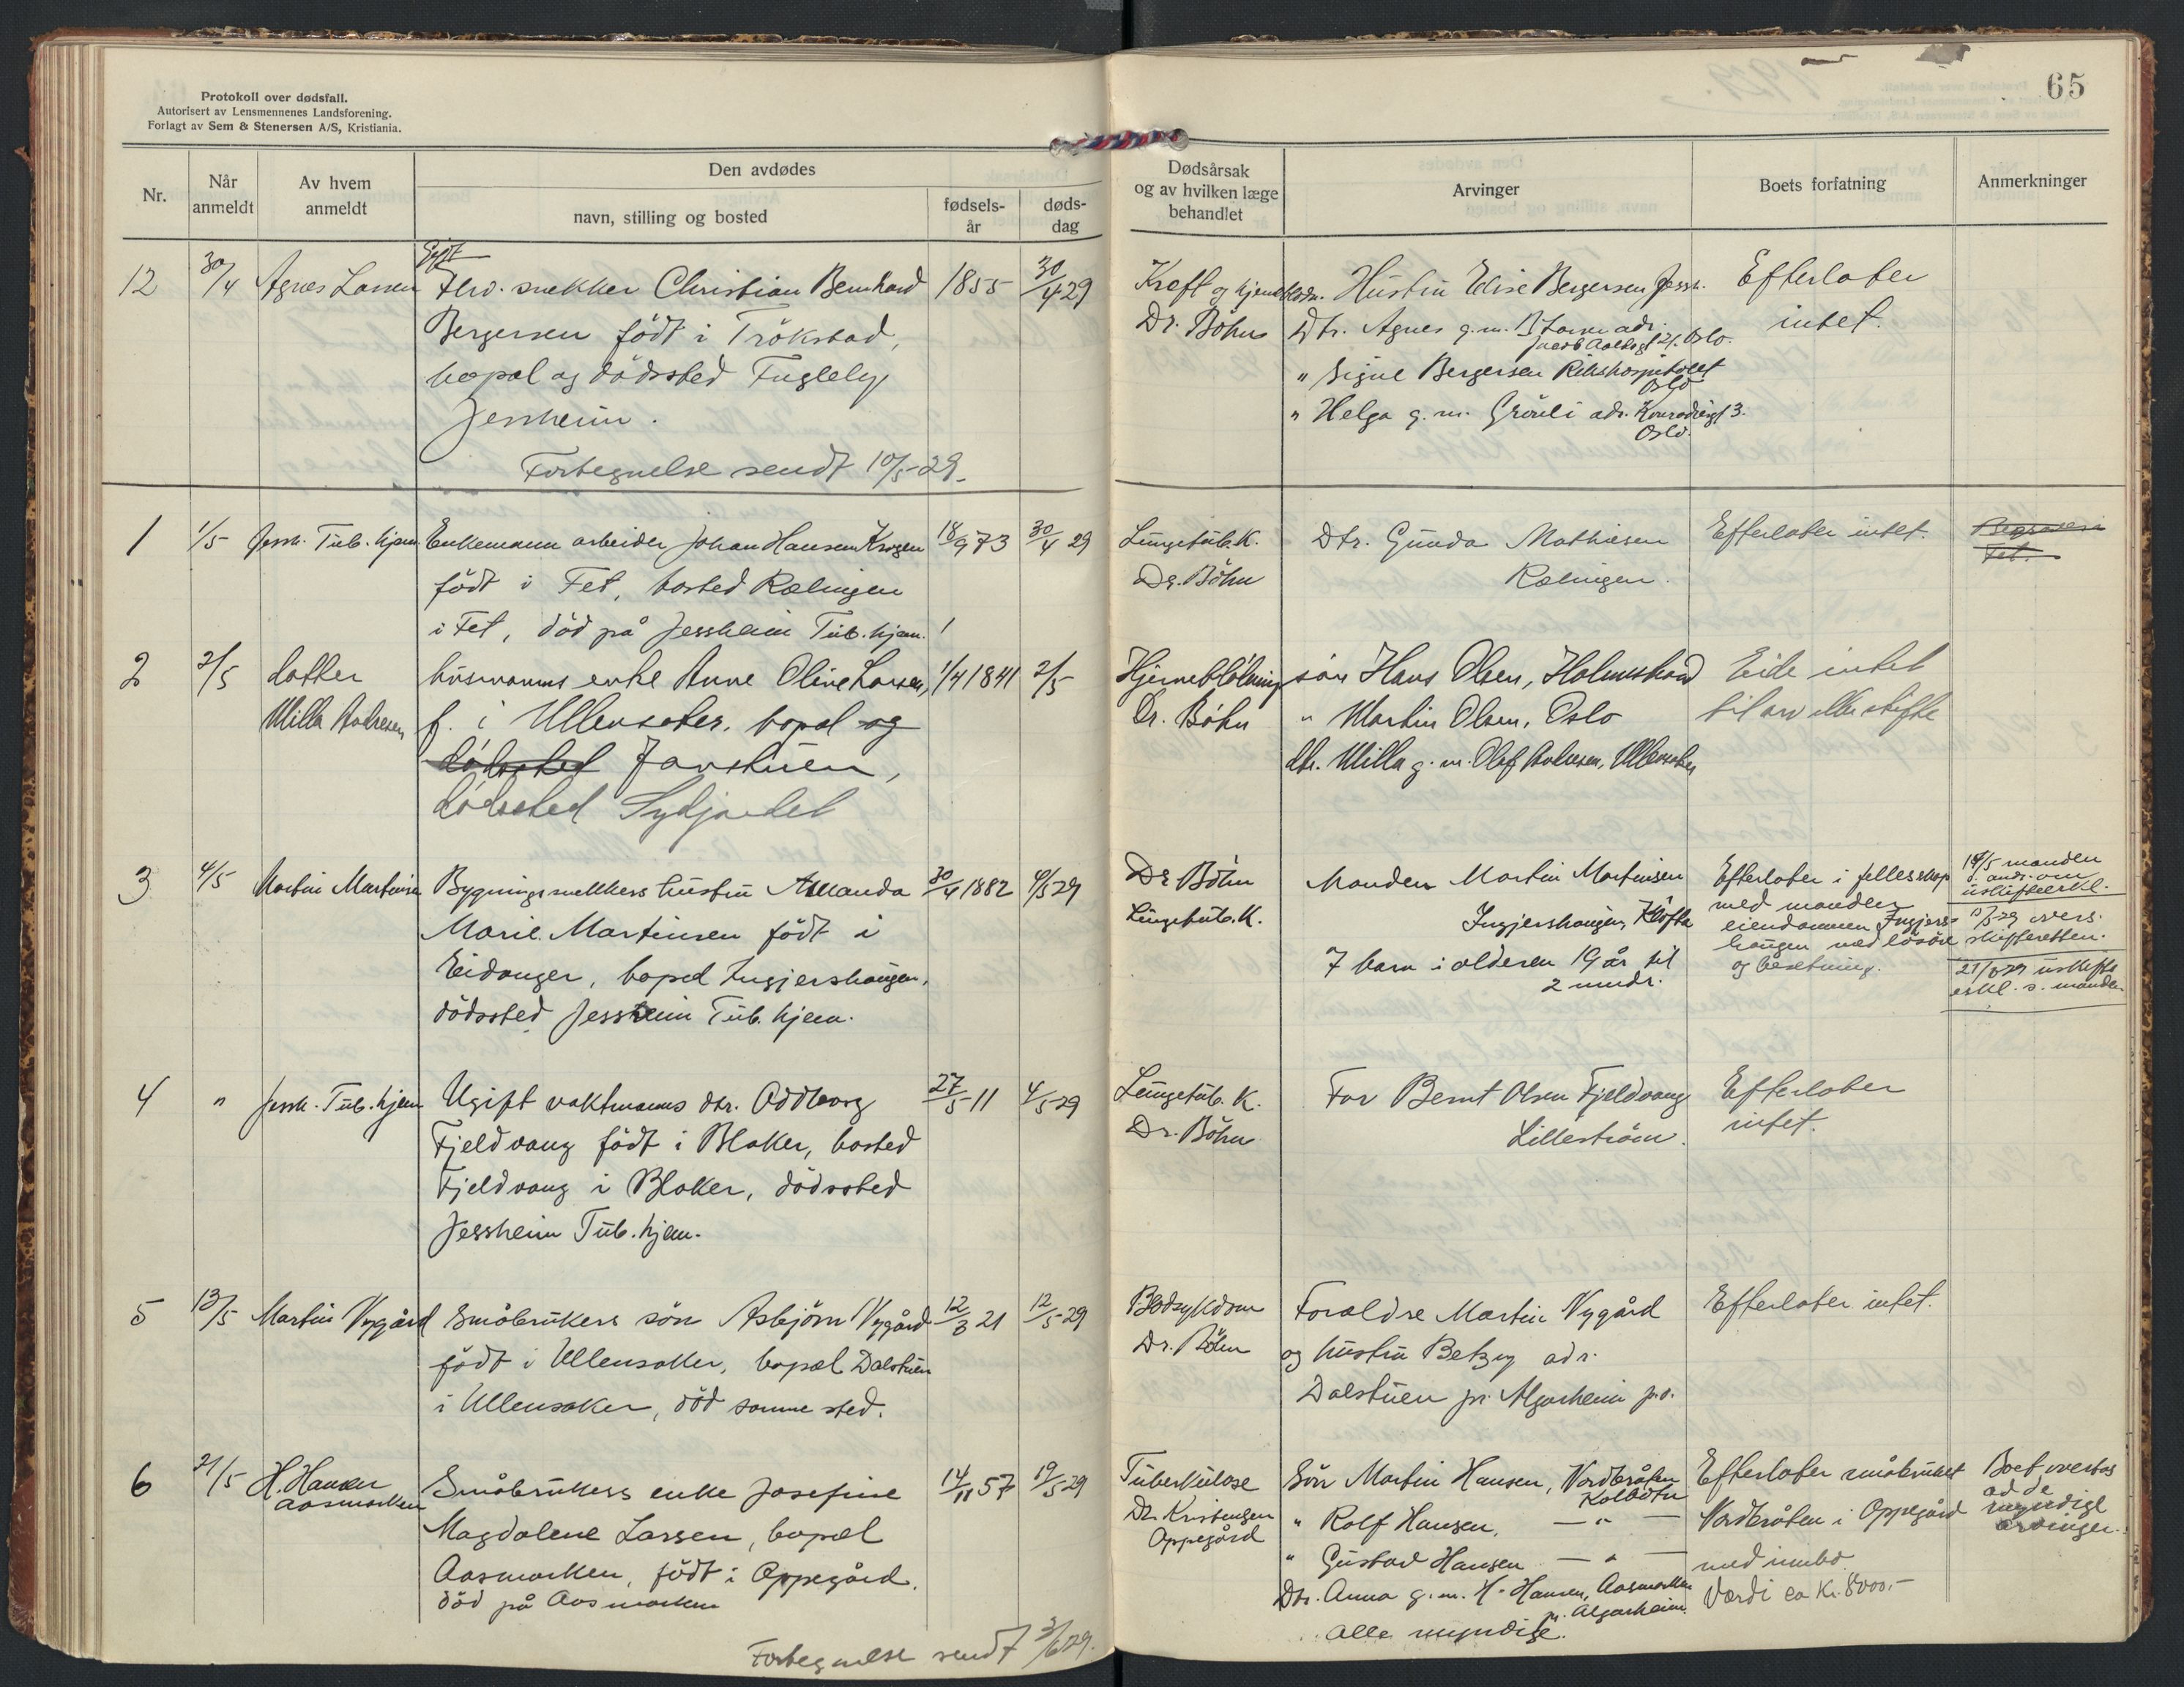 Protokoll over dødsfall.
Autorisert av Lensmennenes Landsforening.
Forlagt av Sem & Stenersen A/S, Kristiania.
65
Nr.
Når anmeldt
Av hvem anmeldt
Den avdødes
navn, stilling og bosted
fødsels-år
døds-dag
Dødsårsak og av hvilken læge behandlet
Arvinger
Boets forfatning
Anmerkninger
12 30/4 Agnes Larsen
Gift
Fhv. snekker Christian Bernhard 1855 30/4 29
Bergersen født i Trøkstad,
bopæl og dødssted Fugleby
Jessheim.
Kreft og hjernebledn.
Dr. Bøhn
Hustru Elise Bergersen Jessh.
Dtr. Agnes g.m. Larsen adr.
Jacob Aallsgt 21. Oslo.
" Signe Bergersen Rikshospitalet
Oslo
" Helga g.m. Grønli adr. Konradisgt 3.
Oslo.
Efterlater
intet.
Fortegnelse sendt 10/5-29.
1 1/5 Jessh. Tub. hjem Enkemann arbeider Johan Hansen Krogen 18/9 73 30/4 29
født i Fet, bosted Rælingen
i Fet, død på Jessheim Tub. hjem.
Lungetub. K.
Dr. Bøhn
Dtr. Gunda Mathiesen
Rælingen.
Efterlater intet.
Fet.
2 2/5 datter
Milla Andresen
husmanns enke Anne Oline Larsen, 1/4 1841 2/5
f. i Ullensaker, bopæl og
dødssted Janstuen,
dødssted Sydjordet
Hjerneblødning
Dr. Bøhn
søn Hans Olsen, Holmestrand
" Martin Olsen, Oslo
dtr. Milla g.m. Olaf Andresen, Ullensaker
Eide intet
til arv eller skifte
3 4/5 Martin Martinsen Bygningssnekkers hustru Amanda 30/4 1882 4/5 29
Marie Martinsen født i
Eidanger, bopæl Ingjershaugen,
dødssted Jessheim Tub. hjem.
Dr Bøhn
Lungetub. K.
Manden Martin Martinsen
Ingjershaugen, Kløfta
7 barn i alderen 19 år til
2 mndr.
Efterlater i fellesskap
med manden
eiendommen Ingjers-
haugen med løsøre
og besetning.
manden
ans. om
uskifteerkl.
overs.
skifteretten.
uskifte
erkl. s. manden
4 " Jessh. Tub. hjem Ugift vaktmanns dtr. Oddborg 27/5 11 4/5 29
Fjeldvang født i Blaker, bosted
Fjeldvang i Blaker, dødssted
Jessheim Tub. hjem.
Lungetub. K.
Dr. Bøhn
Far Bernt Olsen Fjeldvang
Lillestrøm.
Efterlater
intet.
5 13/5 Martin Nygård Småbrukers søn Asbjørn Nygård 12/3 21 12/5 29
født i Ullensaker, bopæl Dalstuen
i Ullensaker, død samme sted.
Blodsykdom
Dr. Bøhn
Forældre Martin Nygård
og hustru Betzy adr.
Dalstuen pr. Algarheim p.o.
Efterlater intet.
6 21/5 H. Hansen
Aasmarken
Småbrukers enke Josefine 14/11 57 19/5 29
Magdalene Larsen, bopæl
Aasmarken, født i Oppegård.
død på Aasmarken
Tuberkulose
Dr. Kristensen
Oppegård
Søn Martin Hansen, Nordbråten
Kolbotn
" Rolf Hansen, — " —
" Gustav Hansen — " —
Dtr. Anna g.m. H. Hansen, Aasmarken
pr. Algarheim.
Alle myndige.
Efterlater småbruket
Nordbråten i Oppegård
med innbo
Værdi ca K. 8000.-
Boet overtas
av de
myndige
arvinger.
Fortegnelse sendt 3/6 29.